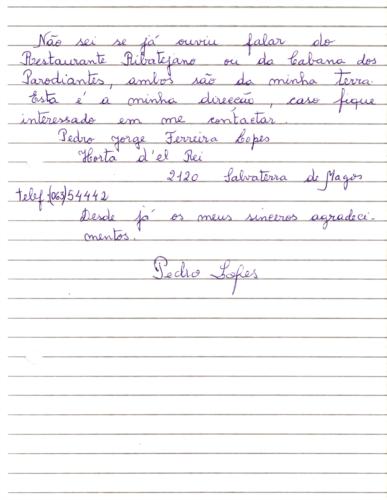 Não sei se já ouviu falar do
Restaurante Ribatejano ou da Cabana dos
Parodiantes, ambos são da minha terra.
Esta é a minha direcção, caso fique
interessado em me contactar.
Pedro Jorge Ferreira Lopes
Horta d'el Rei
2120 Salvaterra de Magos
telef. (063) 54442
Desde já os meus sinceros agradeci-
mentos.
Pedro Lopes